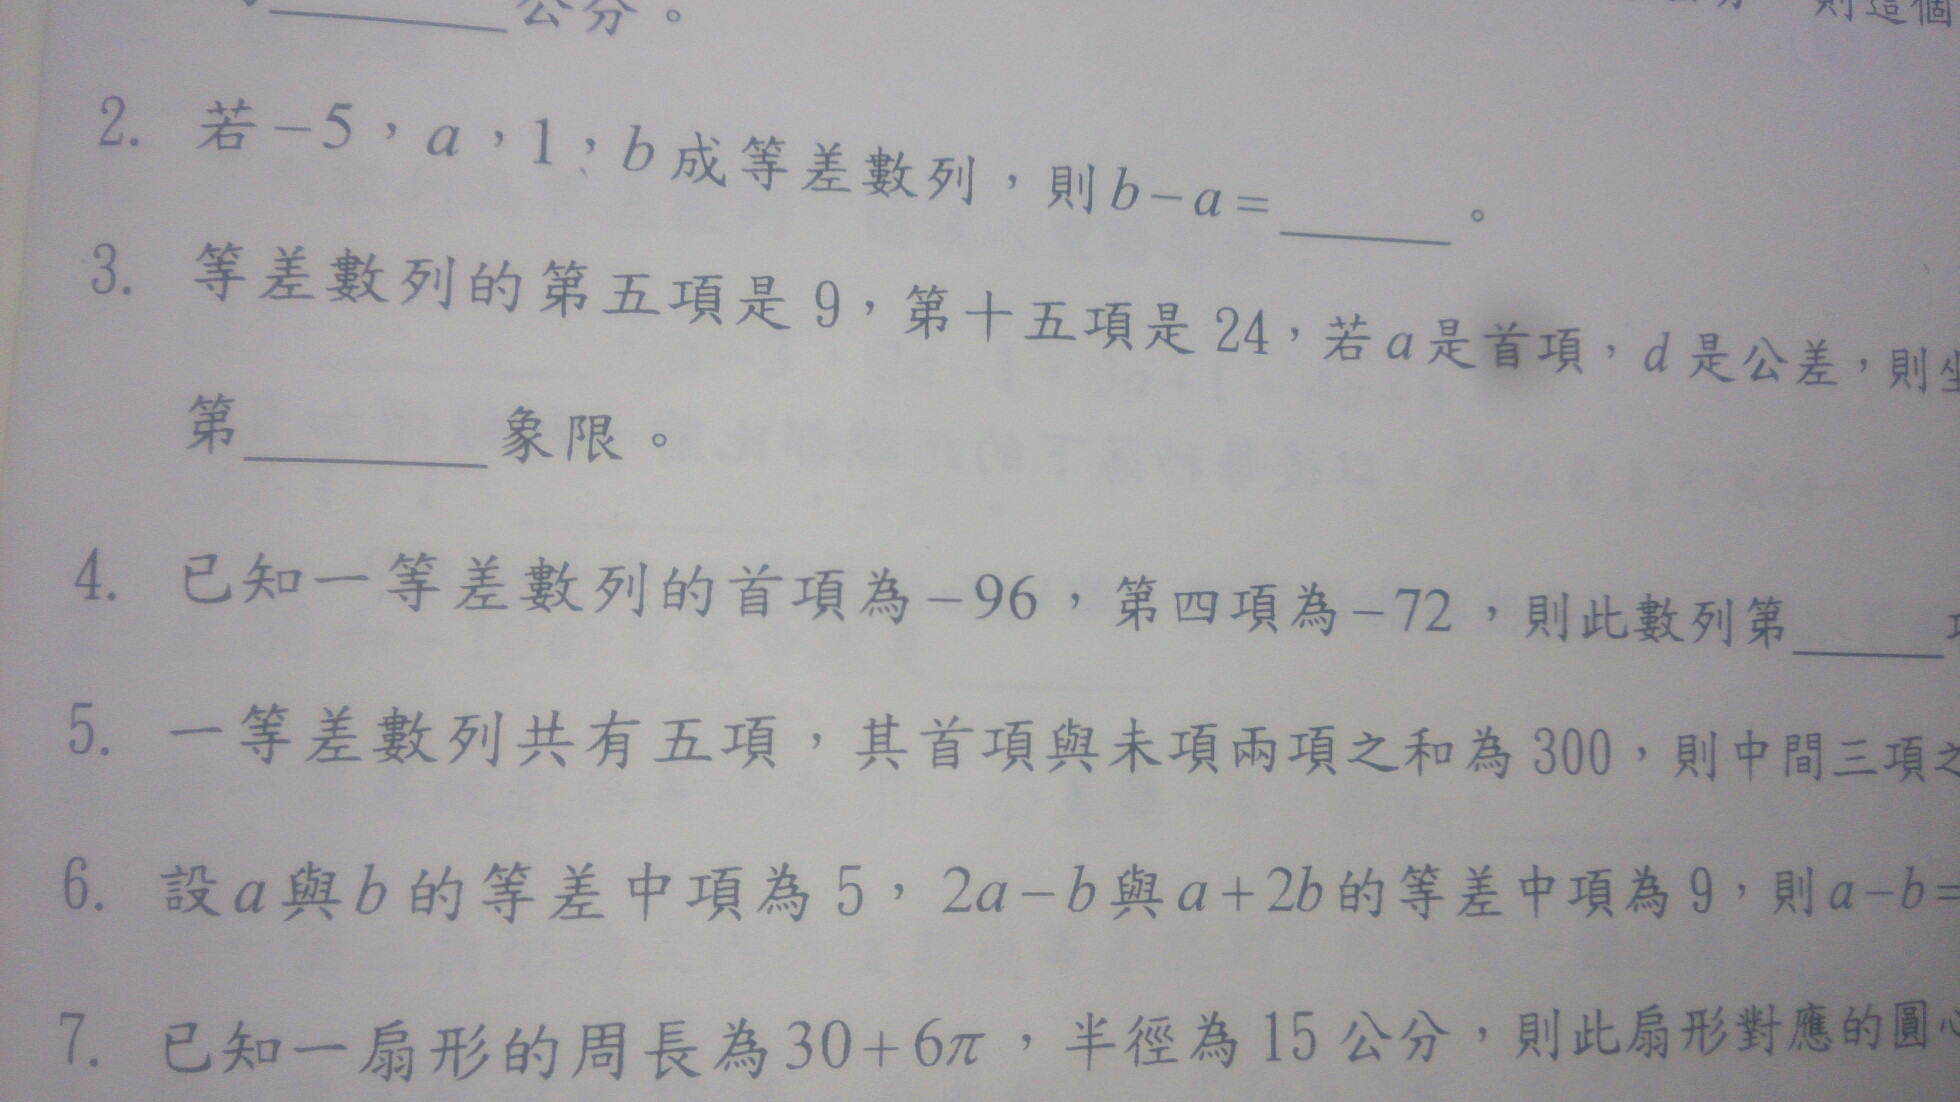 公分。
則這個
2. 若-5,a,1,b成等差數列,則b-a=______。
3. 等差數列的第五項是9,第十五項是24,若a是首項,d是公差,則
第______象限。
4. 已知一等差數列的首項為-96,第四項為-72,則此數列第______
5. 一等差數列共有五項,其首項與末項兩項之和為300,則中間三項之
6. 設a與b的等差中項為5,2a-b與a+2b的等差中項為9,則a-b=
7. 已知一扇形的周長為30+6π,半徑為15公分,則此扇形對應的圓心